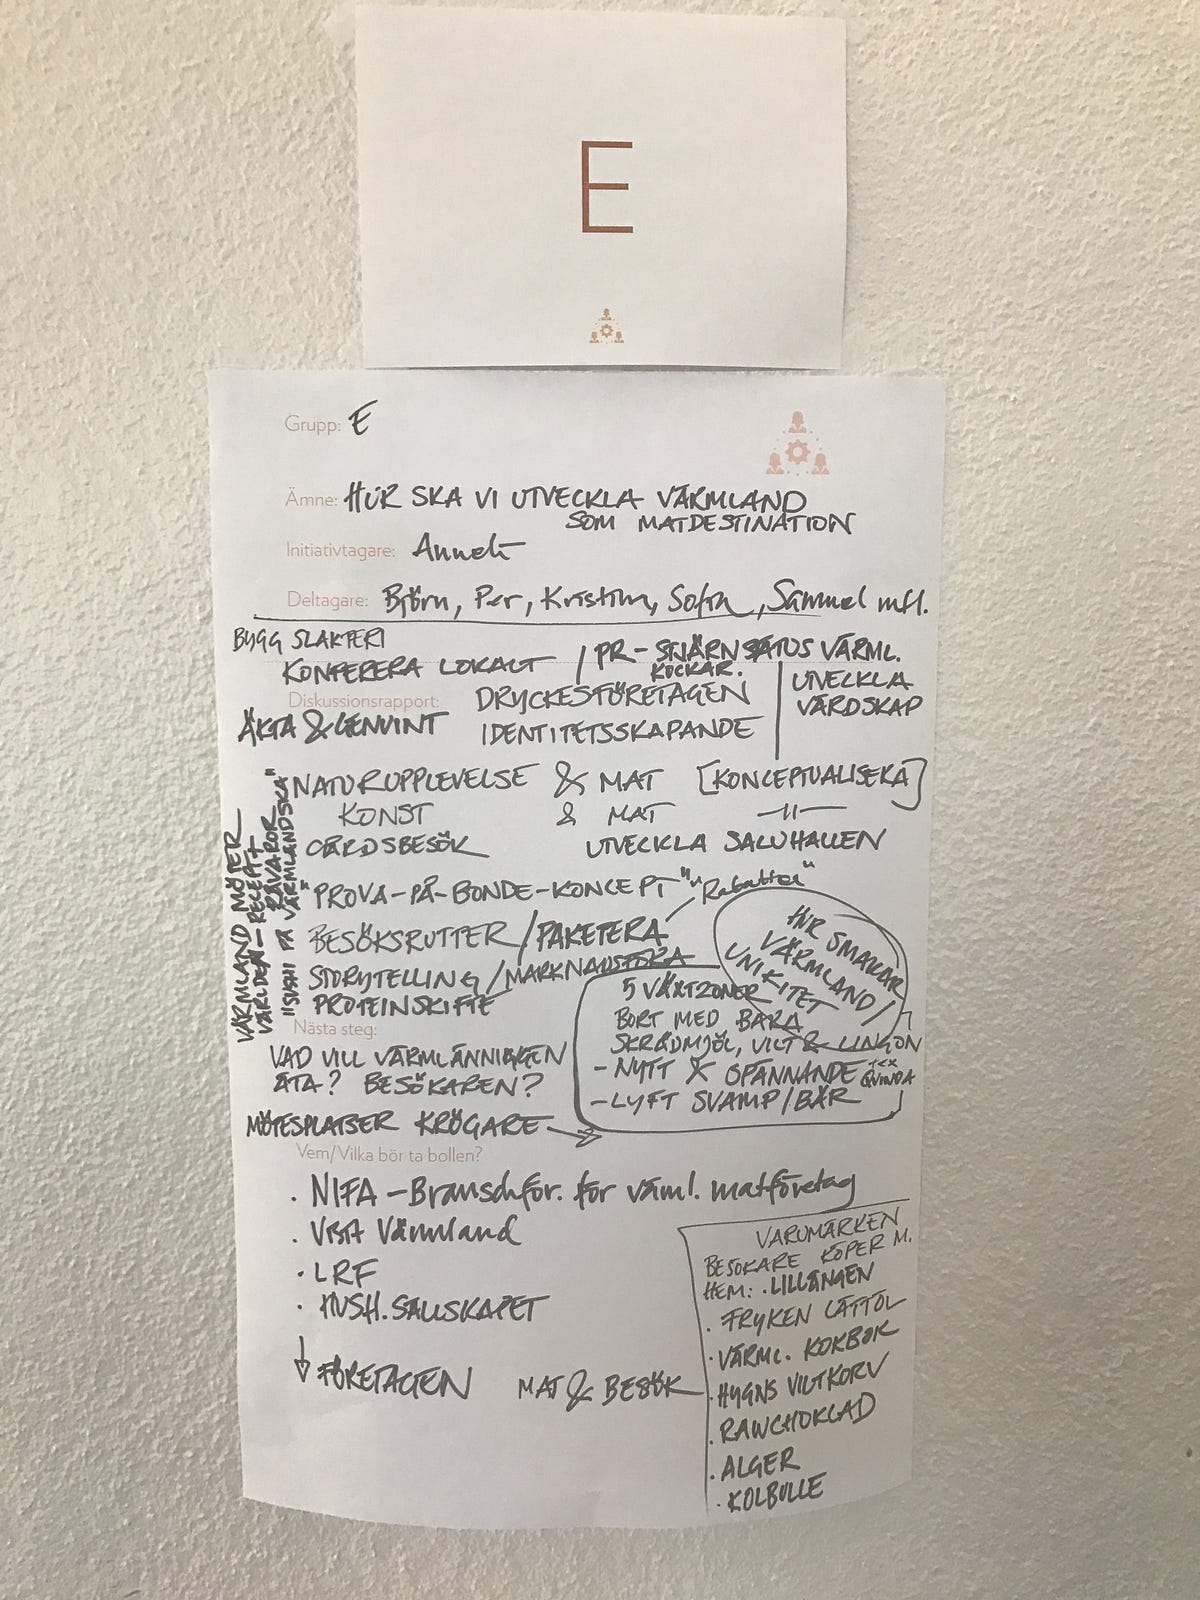 E
Grupp: E
Ämne: HUR SKA VI UTVECKLA VÄRMLAND
SOM MATDESTINATION
Initiativtagare: Anneli
Deltagare: Björn, Per, Kristina, Sofia, Sammel mfl.
BYGG SLAKTERI
KONFERERA LOKALT / PR - STJÄRNSATUS VÄRML.
KOCKAR.
Diskussionsrapport: DRYCKESFÖRETAGEN
UTVECKLA
VÄRDSKAP
ÄKTA & GENUINT IDENTITETSSKAPANDE
NATURUPPLEVELSE & MAT [KONCEPTUALISERA]
KONST & MAT -11-
GÅRDSBESÖK UTVECKLA SALUHALLEN
VÄRMLAND MÖTER
VÄRLDEN - RECEPT +
RÅVAROR
"SUSHI PÅ VÄRMLÄNDSKA"
PROVA-PÅ-BONDE-KONCEPT
BESÖKSRUTTER / PAKETERA
STORYTELLING / MARKNADSFÖRA
PROTEINSKIFTE
HUR SMAKAR
VÄRMLAND /
UNIKITET
5 VÄXTZONER
BORT MED BARA
SKRÄDMJÖL, VILT & LINGON
- NYTT & SPÄNNANDE t ex
QVINOA
- LYFT SVAMP/BÄR
Nästa steg:
VAD VILL VÄRMLÄNNINGEN
ÄTA? BESÖKAREN?
MÖTESPLATSER KRÖGARE
Vem/Vilka bör ta bollen?
· NIFA - Branschför. för värml. matföretag
· Visit Värmland
· LRF
· HUSH. SÄLLSKAPET
FÖRETAGEN MAT & BESÖK
VARUMÄRKEN
BESÖKARE KÖPER M.
HEM: · LILLÄNGEN
· FRYKEN LÄTTÖL
· VÄRML. KOKBOK
· HYGNS VILTKORV
· RAWCHOKLAD
· ALGER
· KOLBULLE